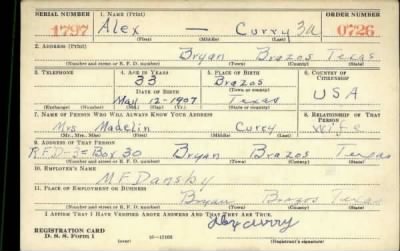 SERIAL NUMBER 1. NAME (Print) ORDER NUMBER
1797 Alex — Curry 3a 0726
(First) (Middle) (Last)
2. ADDRESS (Print)
Bryan Brazos Texas
(Number and street or R. F. D. number) (Town) (County) (State)
3. TELEPHONE 4. AGE IN YEARS 5. PLACE OF BIRTH 6. COUNTRY OF CITIZENSHIP
33 Brazos
DATE OF BIRTH (Town or county)
May 12-1907 Texas USA
(Exchange) (Number) (Mo.) (Day) (Yr.) (State or country)
7. NAME OF PERSON WHO WILL ALWAYS KNOW YOUR ADDRESS 8. RELATIONSHIP OF THAT PERSON
Mrs Madelin Curry wife
(Mr., Mrs., Miss) (First) (Middle) (Last)
9. ADDRESS OF THAT PERSON
R.F.D-3-Box 30 Bryan Brazos Texas
(Number and street or R. F. D. number) (Town) (County) (State)
10. EMPLOYER'S NAME
M.F. Dansby
11. PLACE OF EMPLOYMENT OR BUSINESS
Bryan Brazos Texas
(Number and street or R. F. D. number) (Town) (County) (State)
I AFFIRM THAT I HAVE VERIFIED ABOVE ANSWERS AND THAT THEY ARE TRUE.
REGISTRATION CARD
D. S. S. Form 1 Alex Curry
(Registrant's signature)